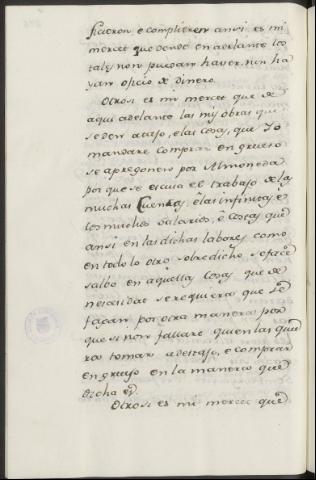 ficieren é complieren ansi es mi
merced que dende en adelante los
tales non puedan haver, nin ha
yan oficio de dinero.
Otrosi es mi merced que de
aqui adelante las mis obras que
se den atajo, e las cosas, que Yo
mandare comprar en grueso
se apregonen por Almoneda
por que se escuse el trabajo de las
muchas Cuentas, é las infinitas é
los muchos salarios, é Costas que
ansi en las dichas labores como
en todo lo otro sobredicho se face
salbo en aquellas Cosas que de
necesidad se requiera que se
façan por otra manera por
que si non fallare quien las quie
ra tomar a destajo, e comprar
en grueso en la manera que
dicha es.
Otrosi es mi merced que